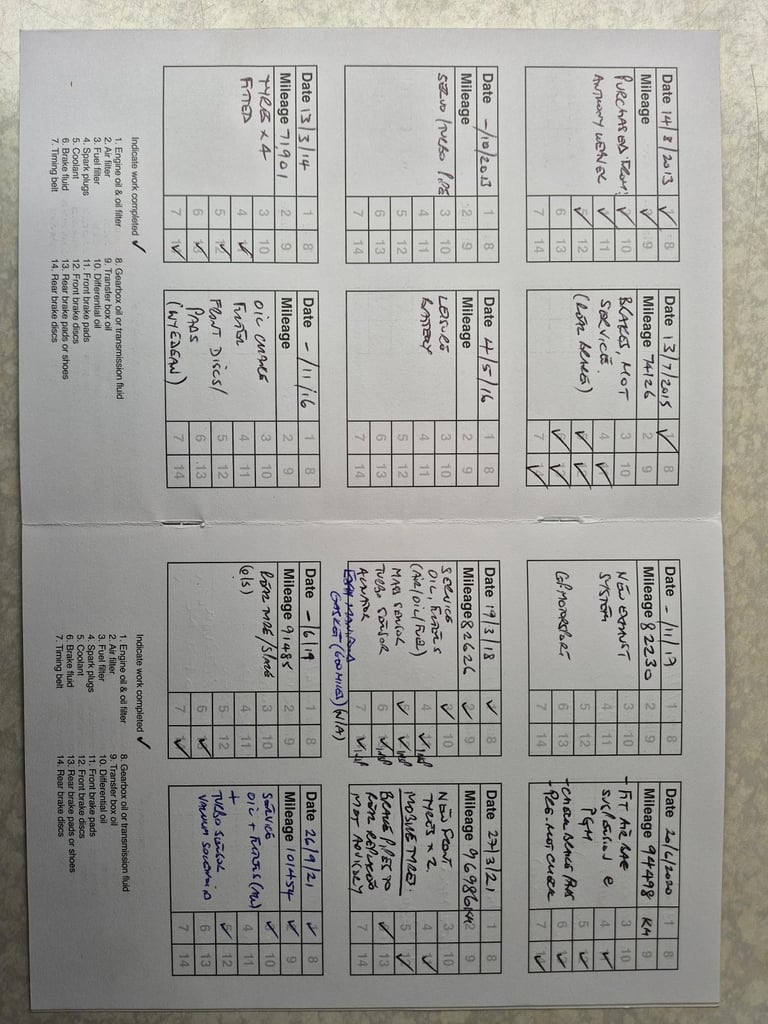 Date 14/8/2013
Mileage
PURCHASED FROM:
ANTHONY WEAVER
1 8
2 9
3 10
4 11
5 12
6 13
7 14
Date 13/7/2015
Mileage 74126
BRAKES, MOT
SERVICE.
(REAR BRAKES)
1 8
2 9
3 10
4 11
5 12
6 13
7 14
Date -/10/2013
Mileage
SERVO/TURBO PIPE
1 8
2 9
3 10
4 11
5 12
6 13
7 14
Date 4/5/16
Mileage
LEISURE
BATTERY
1 8
2 9
3 10
4 11
5 12
6 13
7 14
Date 13/3/14
Mileage 71,901
TYRE x 4
FITTED
1 8
2 9
3 10
4 11
5 12
6 13
7 14
Date -/11/16
Mileage
OIL CHANGE
FILTER
FRONT DISCS/
PADS
(WYEDEAN)
1 8
2 9
3 10
4 11
5 12
6 13
7 14
Indicate work completed ✓
1. Engine oil & oil filter
2. Air filter
3. Fuel filter
4. Spark plugs
5. Coolant
6. Brake fluid
7. Timing belt
8. Gearbox oil or transmission fluid
9. Transfer box oil
10. Differential oil
11. Front brake pads
12. Front brake discs
13. Rear brake pads or shoes
14. Rear brake discs
Date -/11/17
Mileage 82230
NEW EXHAUST
SYSTEM
1 8
2 9
3 10
4 11
5 12
6 13
7 14
Date 20/6/2020
Mileage 94498 KM
- FIT AIR BAG
SUSPENSION @
PGM
- CHECK BRAKE PADS
- PRE. MOT CHECK
1 8
2 9
3 10
4 11
5 12
6 13
7 14
Date 19/3/18
Mileage 82626
SERVICE
OIL, FILTERS
(AIR/OIL/FUEL)
MAP SENSOR
TURBO SENSOR
ACTUATOR
GASKET (600 MILES) (N/A)
1 8
2 9
3 10
4 11
5 12
6 13
7 14
Date 27/3/21
Mileage 96986
NEW FRONT
TYRES x 2.
MOBILE TYRES.
BRAKE PIPES TO
REAR REPLACED
MOT ADVISORY
1 8
2 9
3 10
4 11
5 12
6 13
7 14
Date -/6/19
Mileage 91485
REAR TYRE/S/AXLE
(O/S)
1 8
2 9
3 10
4 11
5 12
6 13
7 14
Date 26/9/21
Mileage 101454
SERVICE
OIL + FILTERS (ALL)
+
TURBO SENSOR
VACUUM SOLENOID
1 8
2 9
3 10
4 11
5 12
6 13
7 14
Indicate work completed ✓
1. Engine oil & oil filter
2. Air filter
3. Fuel filter
4. Spark plugs
5. Coolant
6. Brake fluid
7. Timing belt
8. Gearbox oil or transmission fluid
9. Transfer box oil
10. Differential oil
11. Front brake pads
12. Front brake discs
13. Rear brake pads or shoes
14. Rear brake discs